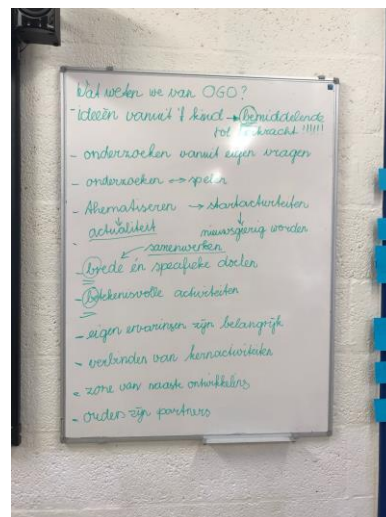 Wat weten we van OGO?
- Ideeën vanuit 't kind → bemiddelende
rol leerkracht !!!!!!
- onderzoeken vanuit eigen vragen
- onderzoeken ↔ spelen
- Thematiseren → startactiviteiten
actualiteit nieuwsgierig worden
samenwerken
- brede én specifieke doelen
- betekenisvolle activiteiten
- eigen ervaringen zijn belangrijk
- verbinden van kernactiviteiten
- zone van naaste ontwikkeling
- ouders zijn partners